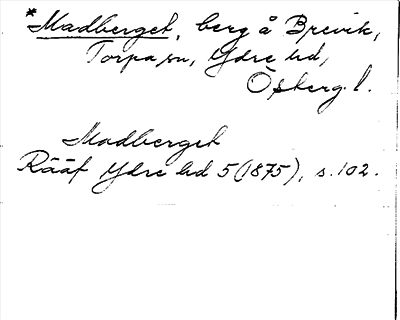 *Madberget, berg å Brevik,
Torpa sn, Ydre hd,
Österg. l.
Madberget
Rääf Ydre hd 5 (1875), s. 102.